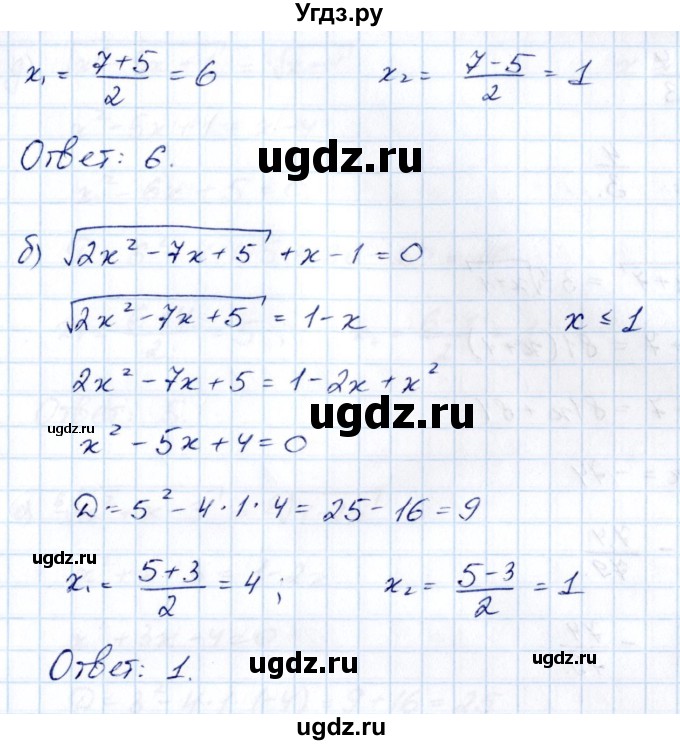 Угдз.ру
x₁ = (7+5)/2 = 6    x₂ = (7-5)/2 = 1
Ответ: 6.
ugdz.ru
б) √(2x² - 7x + 5) + x - 1 = 0
√(2x² - 7x + 5) = 1 - x    x ≤ 1
2x² - 7x + 5 = 1 - 2x + x²
ugdz.ru
ugdz.ru
x² - 5x + 4 = 0
D = 5² - 4·1·4 = 25 - 16 = 9
ugdz.ru
x₁ = (5+3)/2 = 4;    x₂ = (5-3)/2 = 1
Ответ: 1.
ugdz.ru
ugdz.ru
ugdz.ru